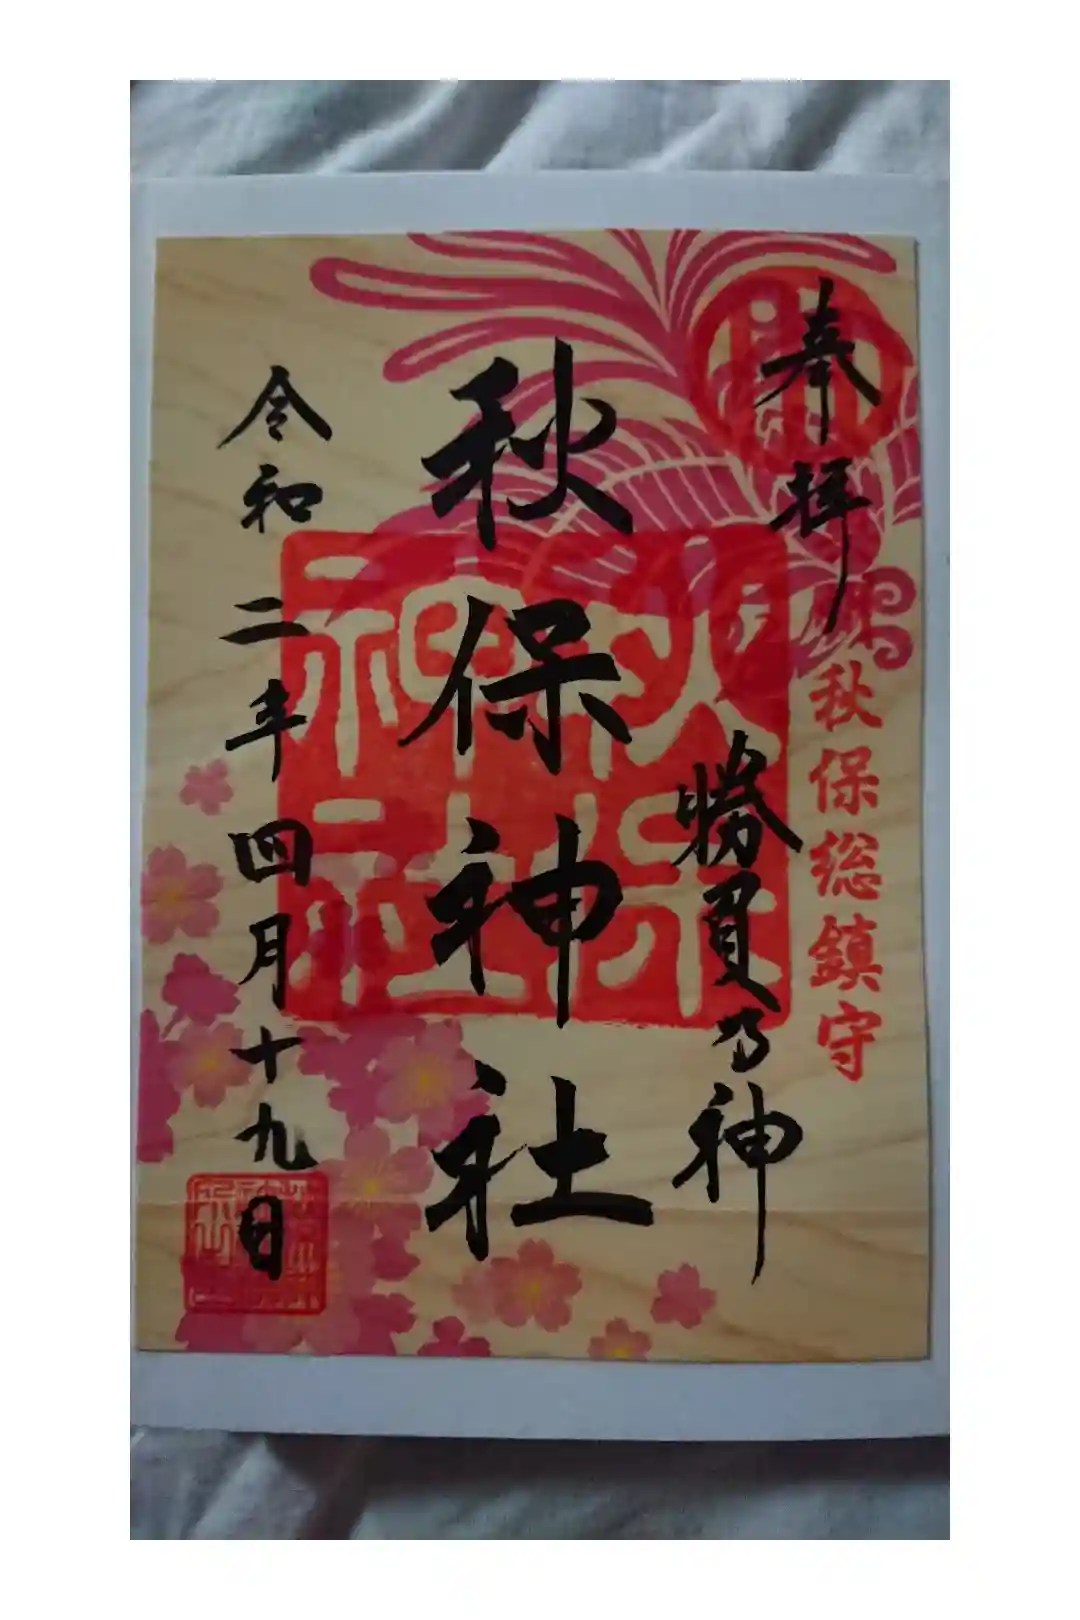 奉拝
秋保総鎮守
勝負乃神
秋保神社
令和二年四月十九日
秋保
神社